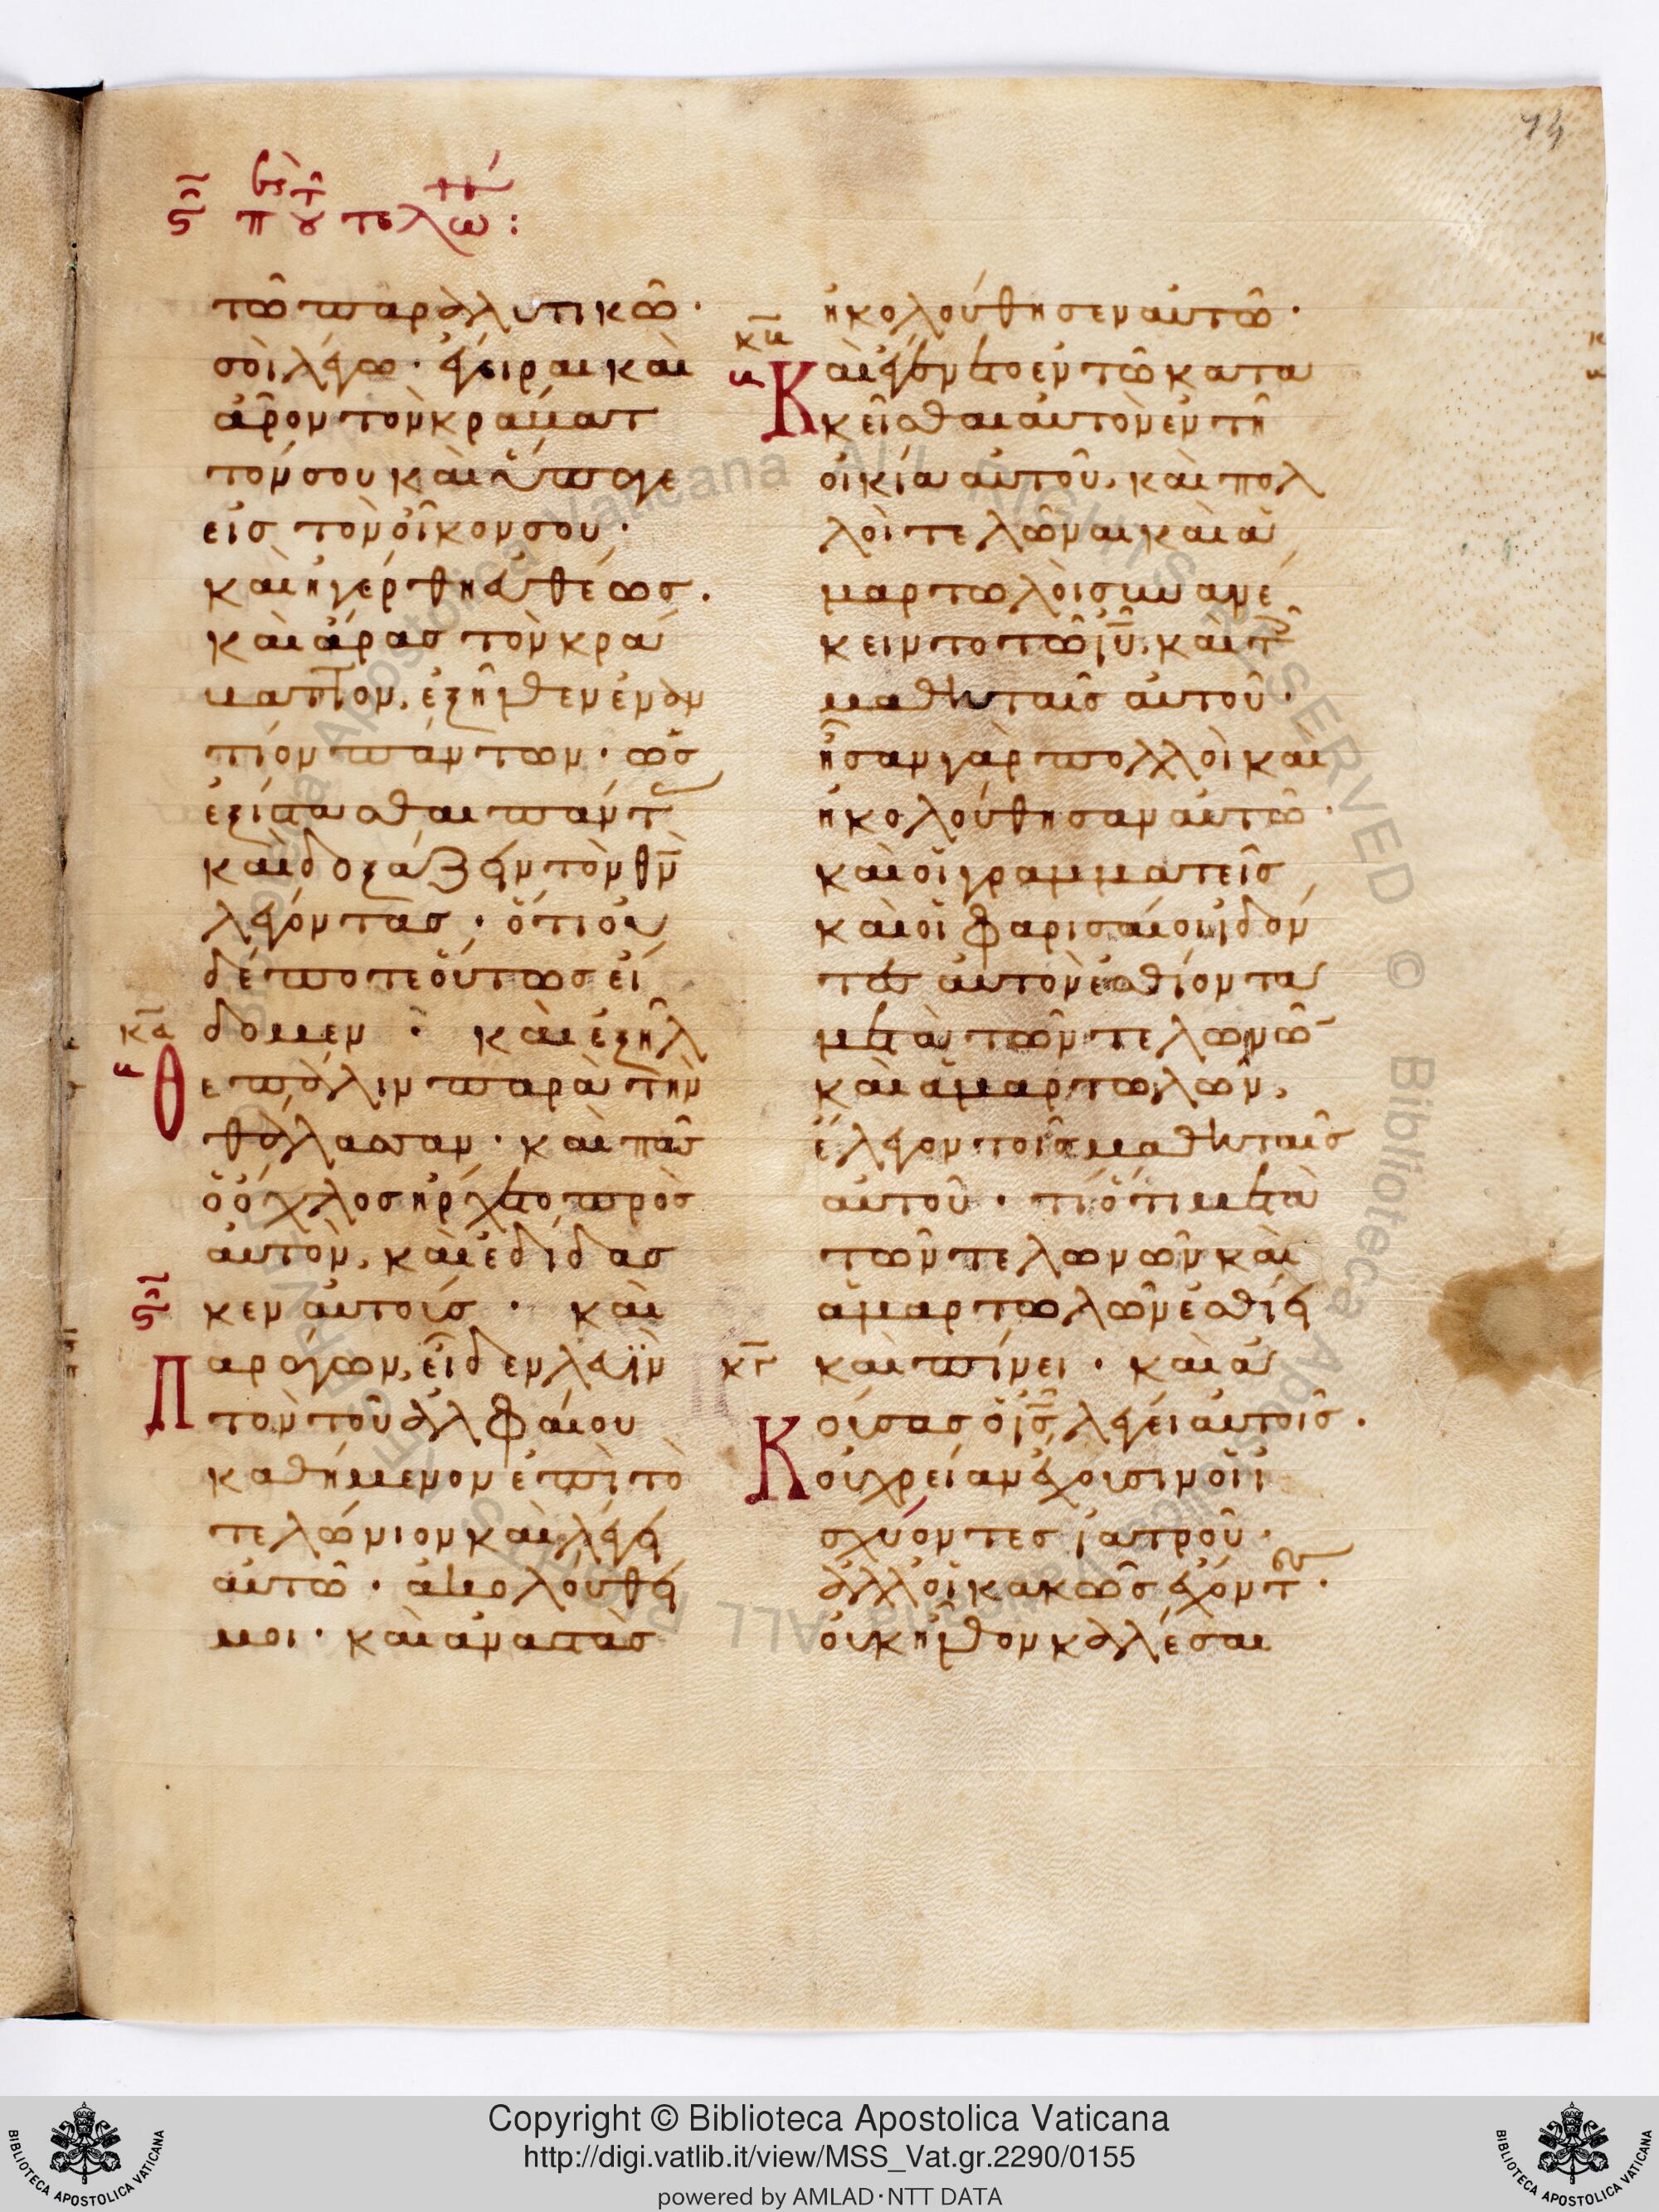 74
ϛ̅ π τοῦ τελώ:
τῶ παραλυτικῶ·
σοὶ λέγω· ἔγειραι καὶ
ἆρον τὸν κράματ
τόν σου καὶ ὕπαγε
εἰς τὸν οἶκον σου·
καὶ ἠγέρθη εὐθέως.
καὶ ἄρας τὸν κρά
ματτον, ἐξῆλθεν ἐνώ
πιον πάντων· ὡς
ἐξίστασθαι πάντ
καὶ δοξάζειν τὸν θν̅
λέγοντας· ὅτι οὐ
δέποτε οὕτως εἴ
δομεν· καὶ ἐξῆλ
κα̅
θε πάλιν παρὰ τὴν
θάλασσαν· καὶ πᾶς
ὁ ὄχλος ἤρχετο πρὸς
αὐτὸν, καὶ ἐδίδασ
κεν αὐτοίς· καὶ
ϛ̅
Παράγων, εἶδεν λευῒν
τὸν τοῦ ἀλφαίου
καθήμενον ἐπὶ τὸ
τελώνιον καὶ λέγει
αὐτῶ· ἀκολούθει
μοι· καὶ ἀναστὰς
ἠκολούθησεν αὐτῶ·
κβ̅
Καὶ ἐγένετο ἐν τῶ κατα
κεῖσθαι αὐτὸν ἐν τῆ
οἰκία αὐτοῦ, καὶ πολ
λοὶ τελῶναι καὶ ἁ
μαρτωλοὶ συνανέ
κειντο τῶ ιυ̅, καὶ τοῖς
μαθηταῖς αὐτοῦ·
ἦσαν γὰρ πολλοὶ καὶ
ἠκολούθησαν αὐτῶ·
καὶ οἱ γραμματεῖς
καὶ οἱ φαρισαίοι ἰδόν
τες αὐτὸν ἐσθίοντα
μετὰ τῶν τελωνῶ
καὶ ἁμαρτωλῶν,
ἔλεγον τοῖς μαθηταῖς
αὐτοῦ· τί ὅτι μετὰ
τῶν τελωνῶν καὶ
ἁμαρτωλῶν ἐσθίει
κγ̅ καὶ πίνει· καὶ ἀ
Κούσας ὁ ις̅, λέγει αὐτοῖς.
οὐ χρείαν ἔχουσιν οἱ ἰ
σχύοντες ἰατροῦ·
ἀλλ οἱ κακῶς ἔχοντες·
οὐκ ἦλθον καλέσαι
Copyright © Biblioteca Apostolica Vaticana
http://digi.vatlib.it/view/MSS_Vat.gr.2290/0155
powered by AMLAD·NTT DATA
BIBLIOTECA APOSTOLICA VATICANA
BIBLIOTECA APOSTOLICA VATICANA